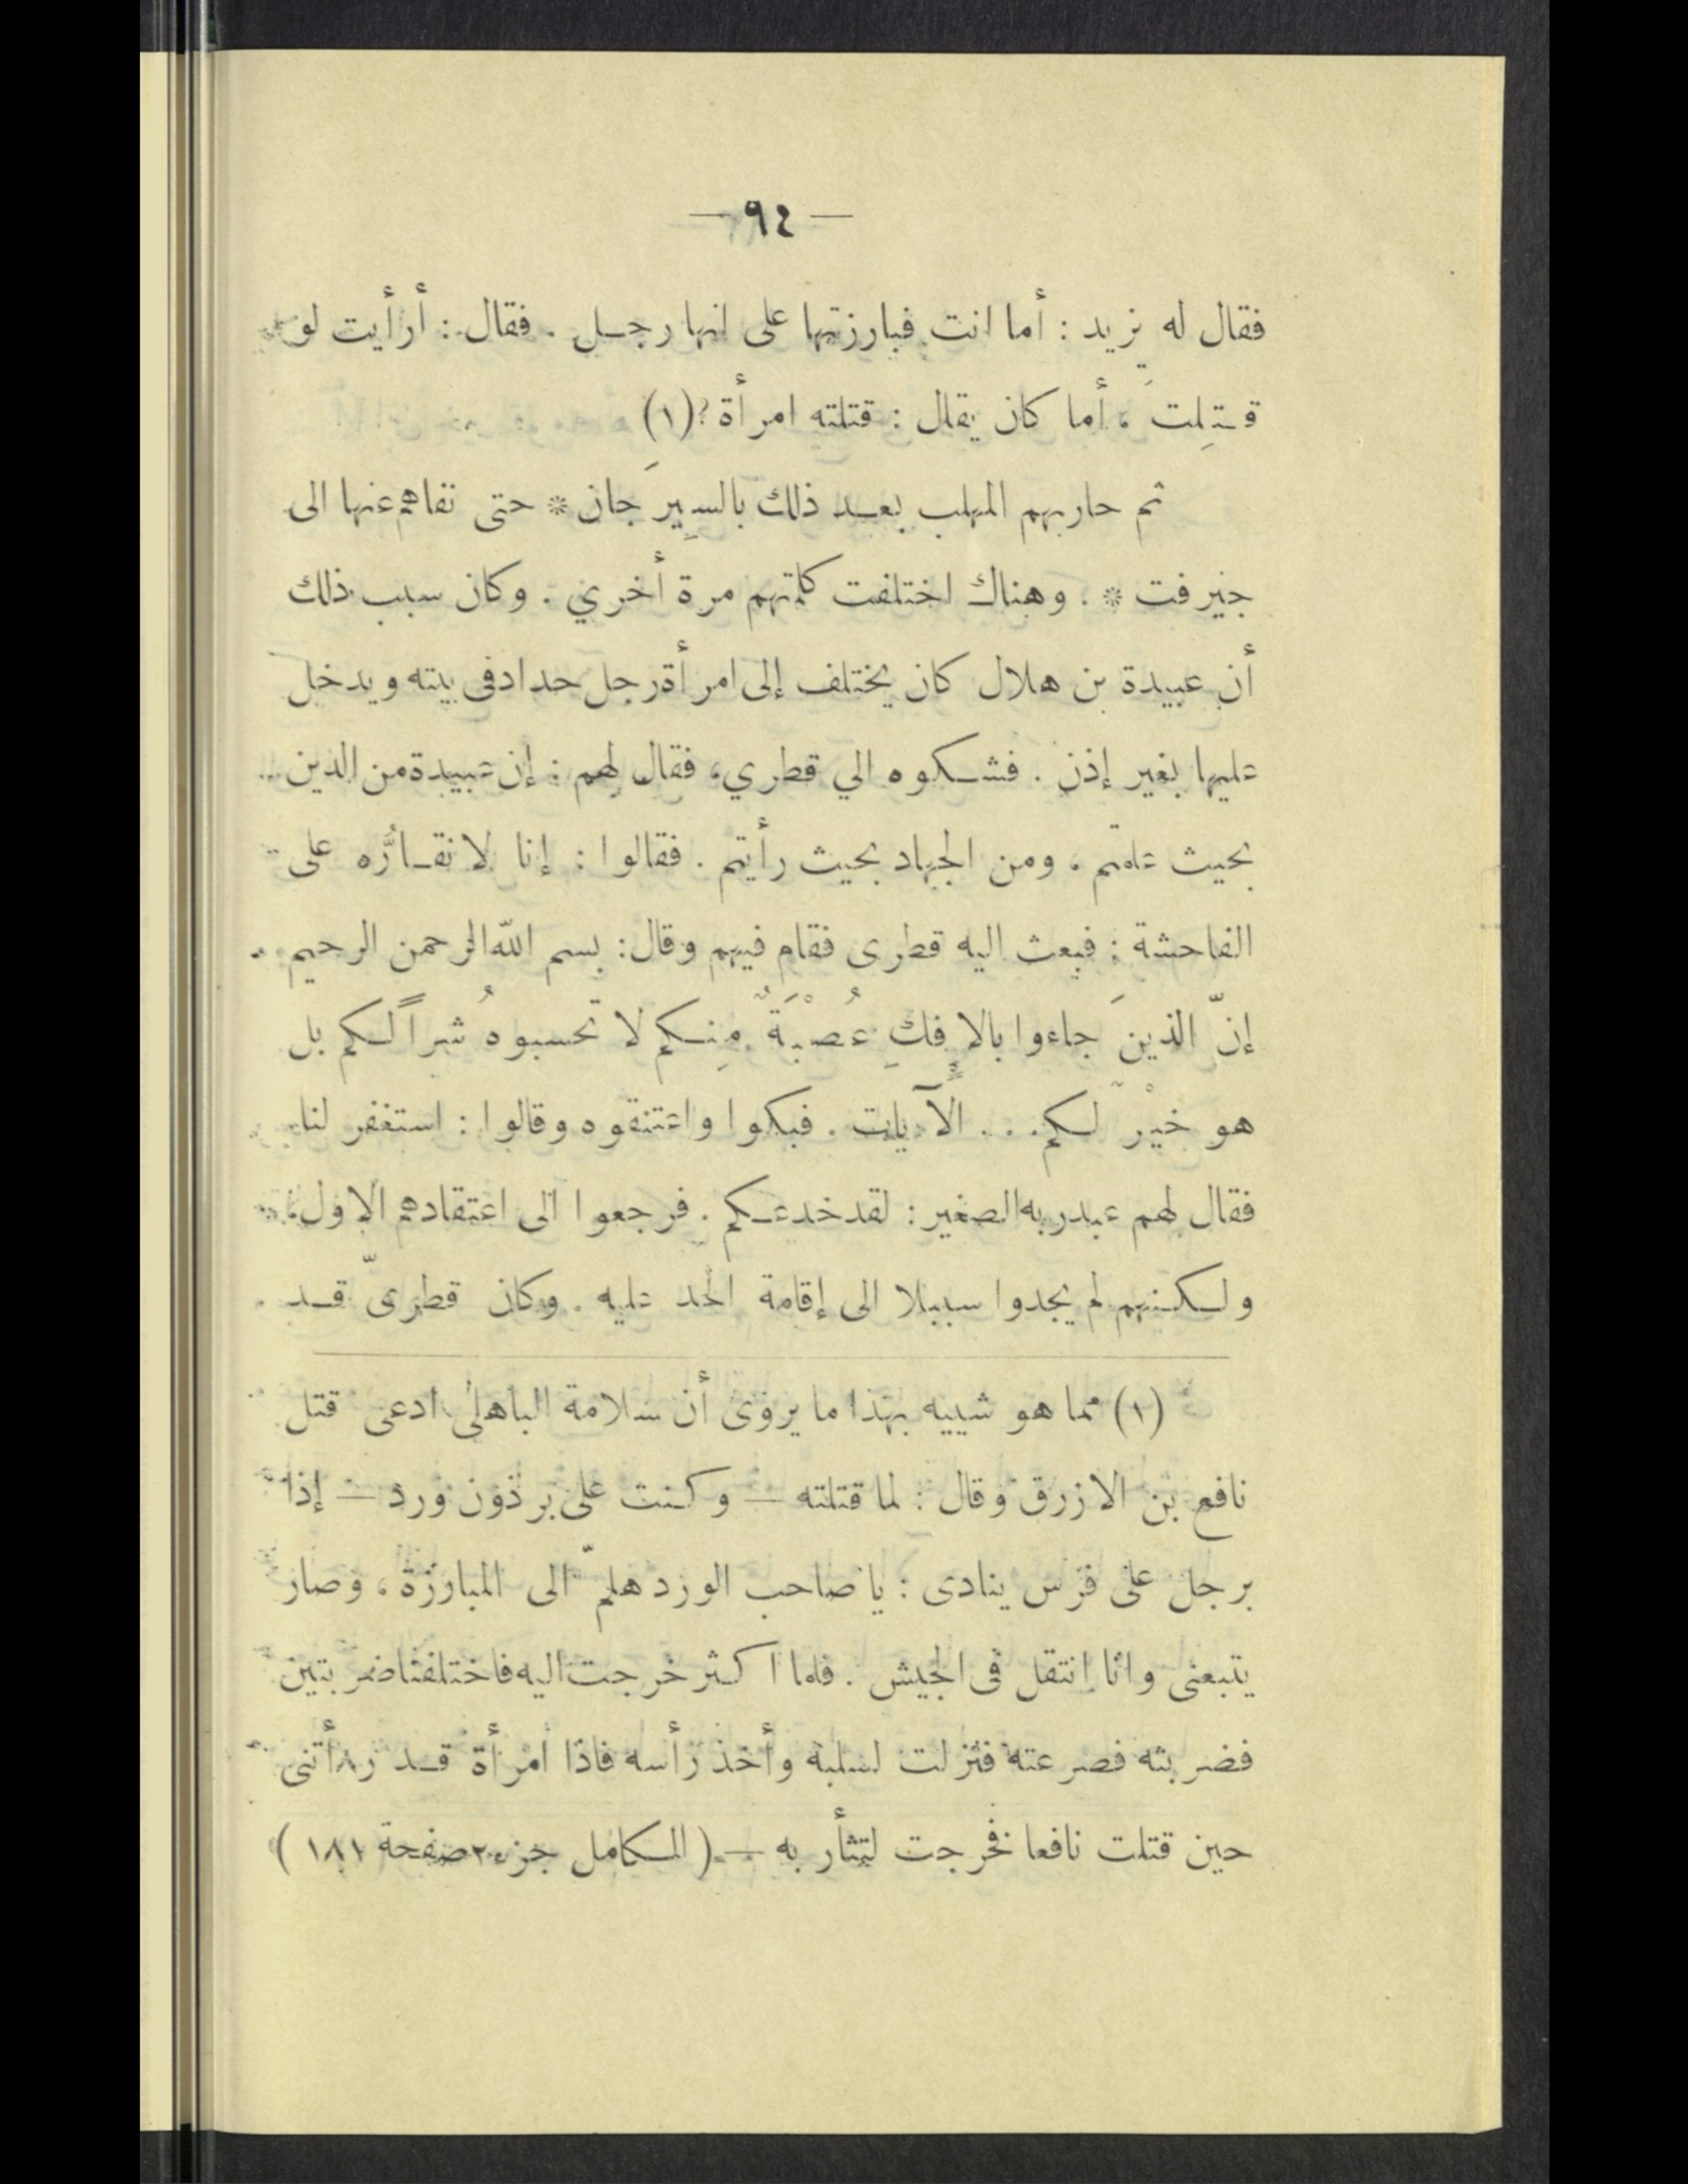 — ٩٤ —
فقال له يزيد : أما انت فبارزتها على انها رجل . فقال : أرأيت لو
قتِلتَ ، أما كان يقال : قتلته امرأة ؟ (١)
ثم حاربهم المهلب بعد ذلك بالسِيرَجان * حتى نفاهم عنها الى
جيرفت * . وهناك اختلفت كلمتهم مرة أخري . وكان سبب ذلك
أن عبيدة بن هلال كان يختلف إلى امرأة رجل حداد فى بيته ويدخل
عليها بغير إذن . فشكوه الي قطري، فقال لهم : إن عبيدة من الدين
بحيث علمتم ، ومن الجهاد بحيث رأيتم . فقالوا : إنا لا نقارُّه على
الفاحشة : فبعث اليه قطرى فقام فيهم وقال : بسم الله الرحمن الرحيم
إنّ الذينَ جاءوا بالافكِ عُصْبَةٌ مِنكم لا تحسبوهُ شراً لكم بل
هو خيْرٌ لكم ... الآيات . فبكوا واعتنقوه وقالوا : استغفر لنا
فقال لهم عبد ربه الصغير : لقد خدعكم . فرجعوا الى اعتقادهم الاول
ولكنهم لم يجدوا سبيلا الى إقامة الحد عليه . وكان قطرىّ قد
(١) مما هو شبيه بهذا ما يروى أن سلامة الباهلى ادعى قتل
نافع بن الازرق وقال : لما قتلته — وكنت على برذون ورد — إذا
برجل على فرس ينادى : يا صاحب الورد هلمّ الى المبارزة ، وصار
يتبعنى وانا انتقل فى الجيش . فلما اكثر خرجت اليه فاختلفنا ضربتين
فضربته فصرعته فنزلت لسلبه وأخذ رأسه فاذا امرأة قد رأتنى
حين قتلت نافعا فخرجت لتثأر به — ( الكامل جزء ٢ صفحة ١٨١ )